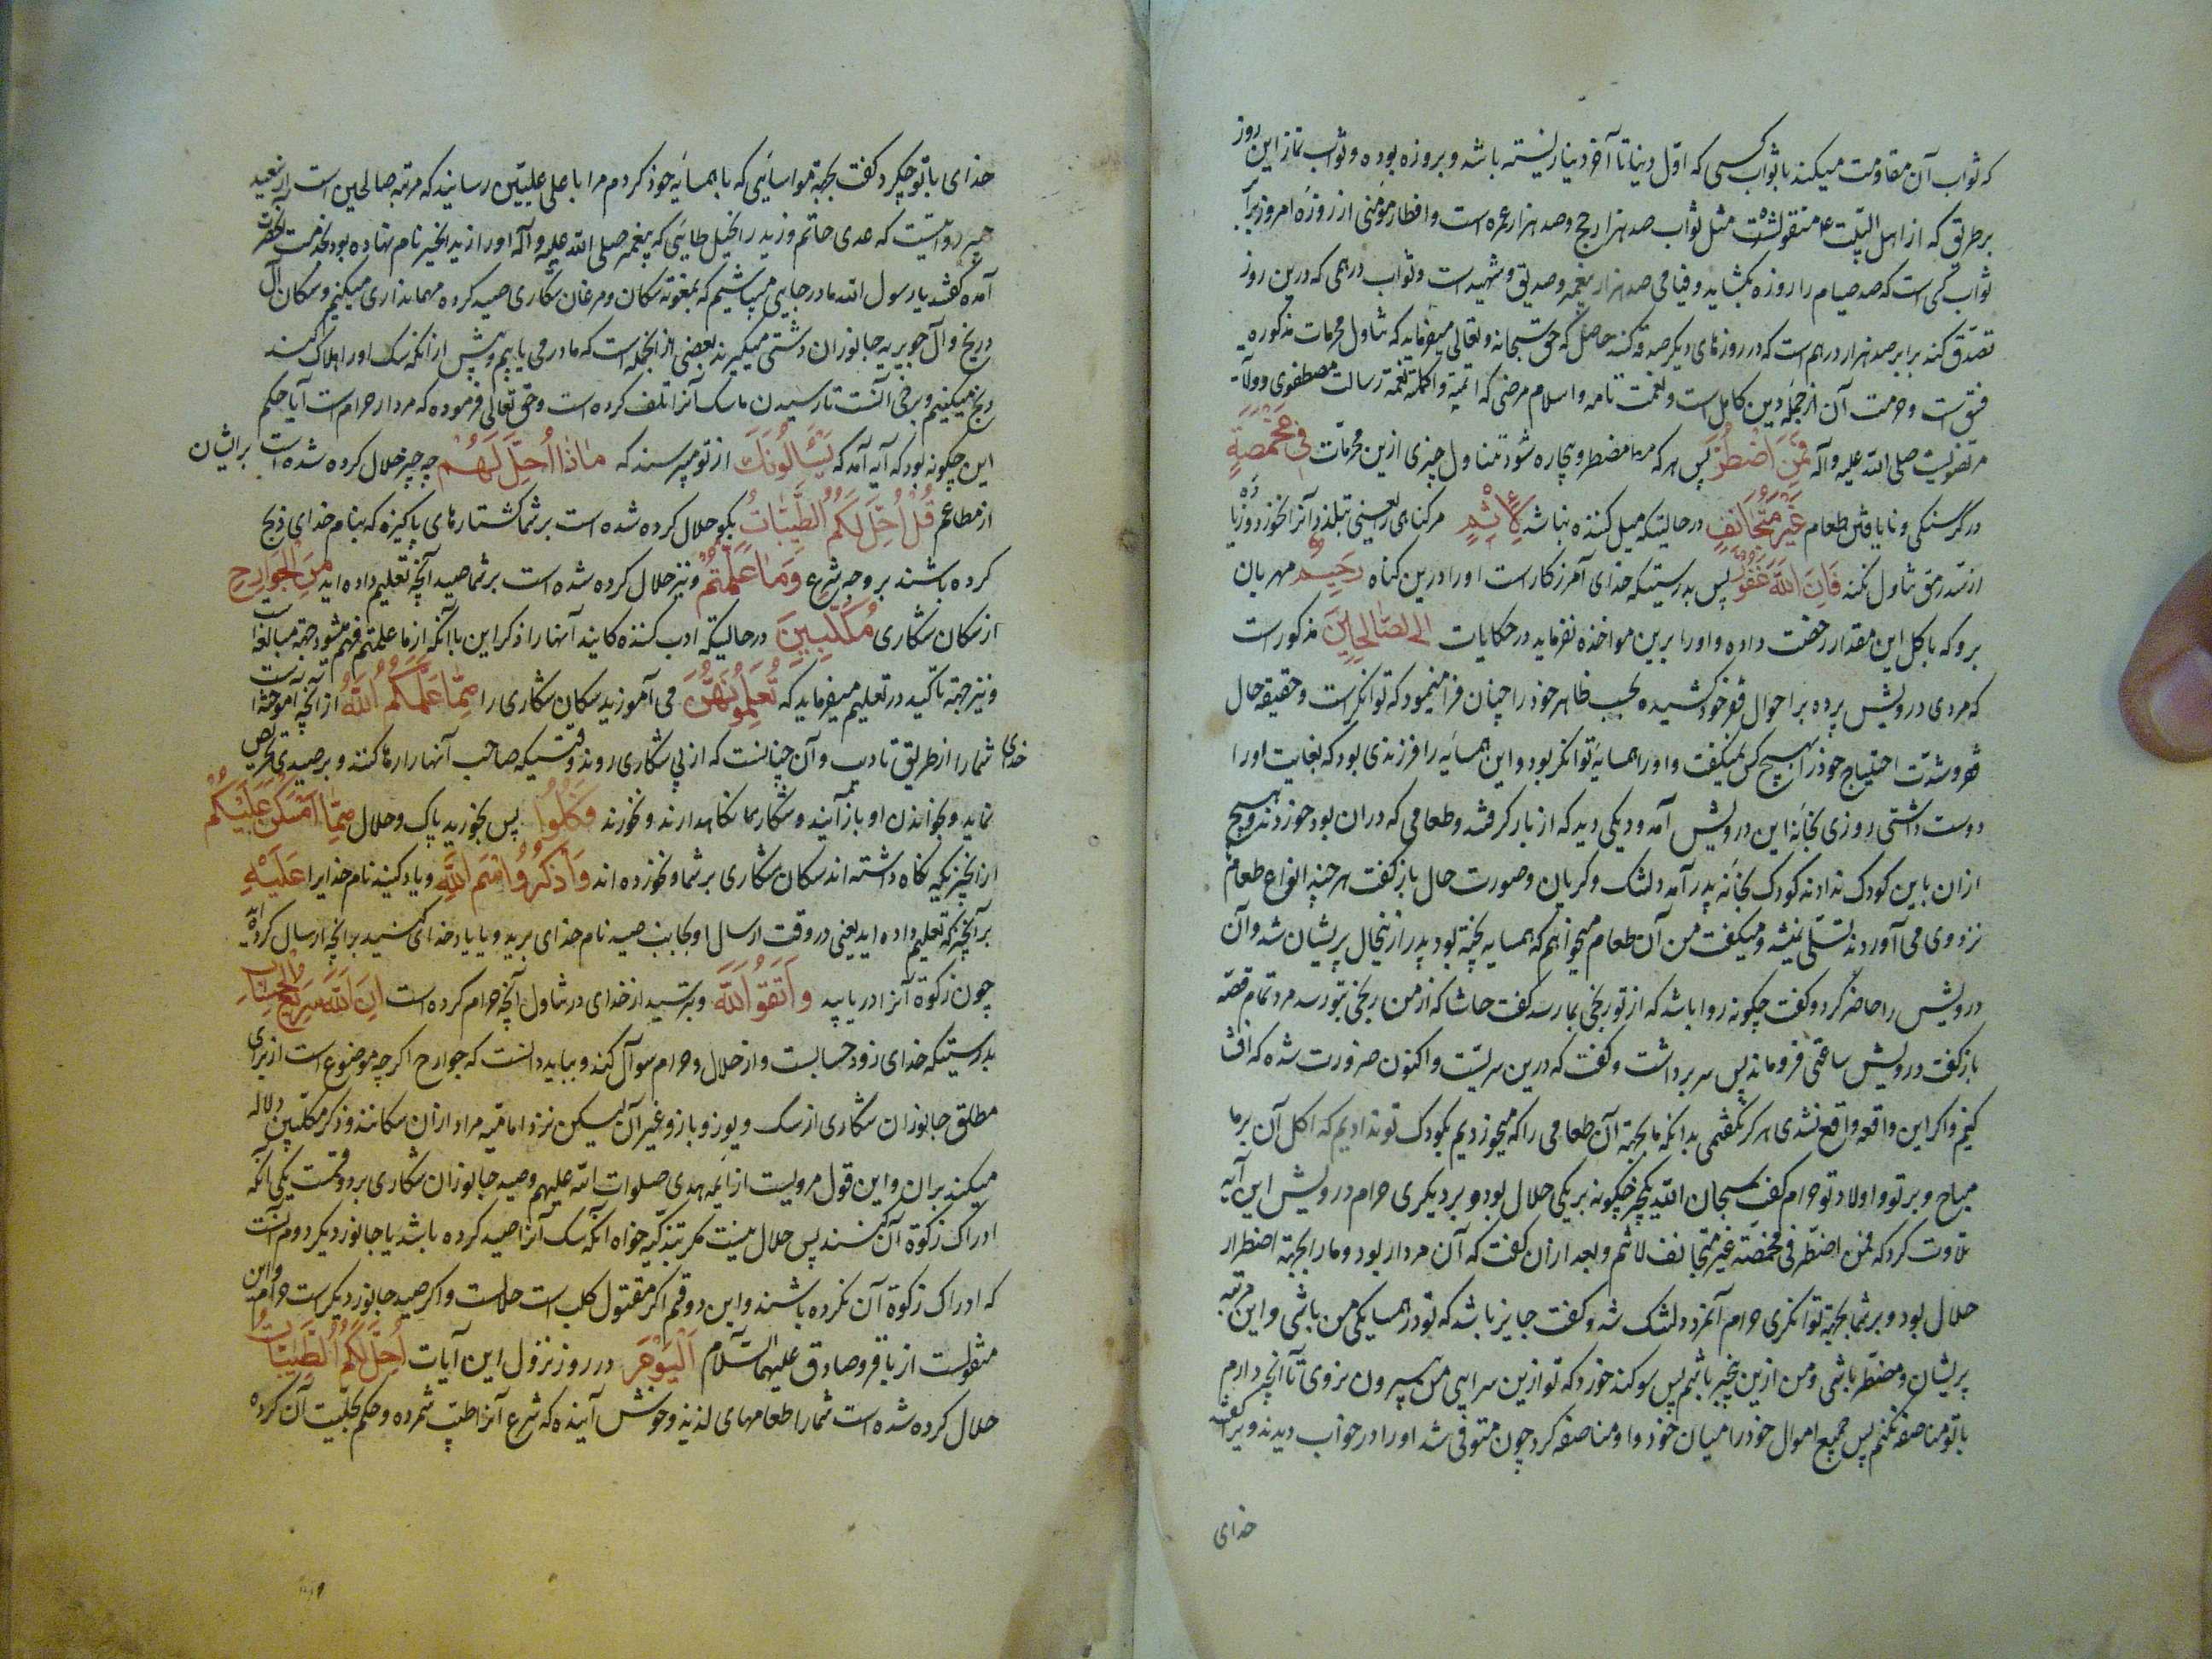 که ثواب آن مقاومت میکند با ثواب کسی که اول دنیا تا آخر دنیا زیسته باشد و بروزه بوده و ثواب نماز این روز
بر طریق که از اهل البیت ع منقولست مثل ثواب صد هزار حج و صد هزار عمره است و افطار مؤمنی از روزه امروز برابر
ثواب کسی است که صد صیام را روزه بکشاید و فیامی صد هزار پیغمبر و صدیق و شهید است و ثواب درهمی که درین روز
تصدق کند برابر صد هزار درهم است که در روزهای دیکر صدقه کند حاصل که حق سبحانه و تعالی میفرماید که تناول محرمات مذکوره
فسق است و حرمت آن از جمله دین کامل است و نعمت تامه و اسلام مرضی که رسالت مصطفوی و ولایت
مرتضویست صلی الله علیه و آله فَمَنِ اضْطُرَّ پس هر که مضطر و بیچاره شود بتناول چیزی ازین محرمات فِی مَخْمَصَةٍ
در کرسنکی و نایافتن طعام غَیْرَ مُتَجَانِفٍ در حالتیکه میل کننده نباشد لِإِثْمٍ مر کناهی را یعنی بتلذذ آنرا نخورد و زیاده
از سد رمق تناول نکند فَإِنَّ اللَّهَ غَفُورٌ پس بدرستیکه خدای آمرزکار است او را درین کناه رَحِیمٌ مهربان
برو که باکل این مقدار رخصت داده و او را برین مواخذه نفرماید در حکایات الصَّالِحِینَ مذکورست
که مردی درویش پرده بر احوال فقر خود کشیده بحسب ظاهر خود را چنان فرا مینمود که توانکر است و حقیقه حال
فقر و شدت احتیاج خود را بهیچ کس نمیکفت و او را همسایه توانکر بود و این همسایه را فرزندی بود که بغایت او را
دوست داشتی روزی بخانه این درویش آمد و دیکی دید که از بار کرفتند و طعامی که دران بود خوردند و هیچ
ازان باین کودک ندادند کودک بخانه پدر آمد دلتنک و کریان و صورت حال باز کفت هر چند انواع طعام
نزد وی می آوردند تسلی نمیشد و میکفت من آن طعام میخواهم که همسایه پخته بود پدر ازینحال پریشان شد و آن
درویش را حاضر کرد و کفت چکونه روا باشد که از تو رنجی بما رسد کفت حاشا که از من رنجی بتو رسد مرد تمام قصه
باز کفت درویش ساعتی فرو ماند پس سر برداشت و کفت که درین سریست و اکنون ضرورت شد که افشا
کنم و اکر این واقعه واقع نشدی هرکز نکفتمی بدانکه ما بجهة آن طعامی را که میخوردیم بکودک تو ندادیم که اکل آن بر ما
مباح و بر تو و اولاد تو حرام کفت سبحان الله یکچیز چکونه بر یکی حلال بود و بر دیکری حرام درویش این آیه
تلاوت کرد که فمن اضطر فی مخمصة غیر متجانف لاثم و بعد ازان کفت که آن مردار بود و ما را بجهة اضطرار
حلال بود و بر شما بجهة توانکری حرام آنمرد دلتنک شد و کفت جایز باشد که تو در همسایکی من باشی و این مرتبه
پریشان و مضطر باشی و من ازین بیخبر باشم پس سوکند خورد که تو ازین سرای من بیرون نروی تا آنچه دارم
با تو مناصفه نکنم پس جمیع اموال خود را میان خود و او مناصفه کرد چون متوفی شد او را در خواب دیدند و پرسیدند
خدای
خدای با تو چکرد کفت بجهة مواساتی که با همسایه خود کردم مرا باعلی علیین رسانیدند که مرتبه صالحین است از سعید
جبیر روایتست که عدی حاتم و زید الخیل طائی که پیغمبر صلی الله علیه و آله او را زید الخیر نام نهاده بود بخدمت آنحضرت
آمده کفتند یا رسول الله ما در جایی میباشیم که بمعونه سکان و مرغان شکاری صید کرده مهمانداری میکنیم و سکان آل
دریح و آل جویریه جانوران دشتی میکیرند بعضی از آنجمله است که ما درمی یابیم و پیش از آنکه سک او را هلاک کند
ذبح میکنیم و برخی آنست که تا رسیدن ما سک آنرا تلف کرده است و حق تعالی فرموده که مردار حرام است آیا حکم
این چکونه بود که آیه آمد که یَسْأَلُونَکَ از تو میپرسند که مَاذَا أُحِلَّ لَهُمْ چه چیز حلال کرده شده است برایشان
از مطاعم قُلْ أُحِلَّ لَکُمُ الطَّیِّبَاتُ بکو حلال کرده شده است بر شما کشتارهای پاکیزه که بنام خدای ذبح
کرده باشند بر وجه شرع وَمَا عَلَّمْتُمْ و نیز حلال کرده شده است بر شما صید آنچه تعلیم داده اید مِنَ الْجَوَارِحِ
از سکان شکاری مُکَلِّبِینَ در حالتیکه ادب کننده کانید آنها را ذکر این با آنکه از ما علمتم فهم میشود جهة مبالغه است
و نیز جهة تاکید در تعلیم میفرماید که تُعَلِّمُونَهُنَّ می آموزید سکان شکاری را مِمَّا عَلَّمَکُمُ اللَّهُ از آنچه آموخته است
خدای شما را از طریق تادیب و آن چنانست که از پی شکاری روند وقتیکه صاحب آنها را رها کند و بر صید تحریص
نماید و بخواندن او باز آیند و شکار را نکاه دارند و نخورند فَکُلُوا پس بخورید پاک و حلال مِمَّا أَمْسَکْنَ عَلَیْکُمْ
از آنچیزیکه نکاه داشته اند سکان شکاری بر شما و نخورده اند وَاذْکُرُوا اسْمَ اللَّهِ و یاد کنید نام خدایرا عَلَیْهِ
بر آنچه که تعلیم داده اید یعنی در وقت ارسال او بجانب صید نام خدای برید و یا یاد خدای کنید بر آنچه ارسال کرده اید
چون زکوة آنرا دریابید وَاتَّقُوا اللَّهَ و بترسید از خدای در تناول آنچه حرام کرده است إِنَّ اللَّهَ سَرِیعُ الْحِسَابِ
بدرستیکه خدای زود حسابست و از حلال و حرام سوال کند و بباید دانست که جوارح اکر چه موضوع است از برای
مطلق جانوران شکاری از سک و یوز و باز و غیر آن لیکن نزد امامیه مراد ازان سکانند و ذکر مکلبین دلاله
میکند بران و این قول مرویست از ائمه هدی صلوات الله علیهم و صید جانوران شکاری بر دو قسمست یکی آنکه
ادراک زکوة آن کنند پس حلال نیست مکر بتذکیه خواه آنکه سک آنرا صید کرده باشد یا جانور دیکر دوم آنست
که ادراک زکوة آن نکرده باشند و این دو قسم اکر مقتول کلب است حلالست و اکر صید جانور دیکر است حرام و این
منقولست از باقر و صادق علیهما السلام اَلْیَوْمَ در روز نزول این آیات أُحِلَّ لَکُمُ الطَّیِّبَاتُ
حلال کرده شده است شما را طعامهای لذیذ و خوش آینده که شرع آنرا طیب شمرده و حکم بحلیت آن کرده